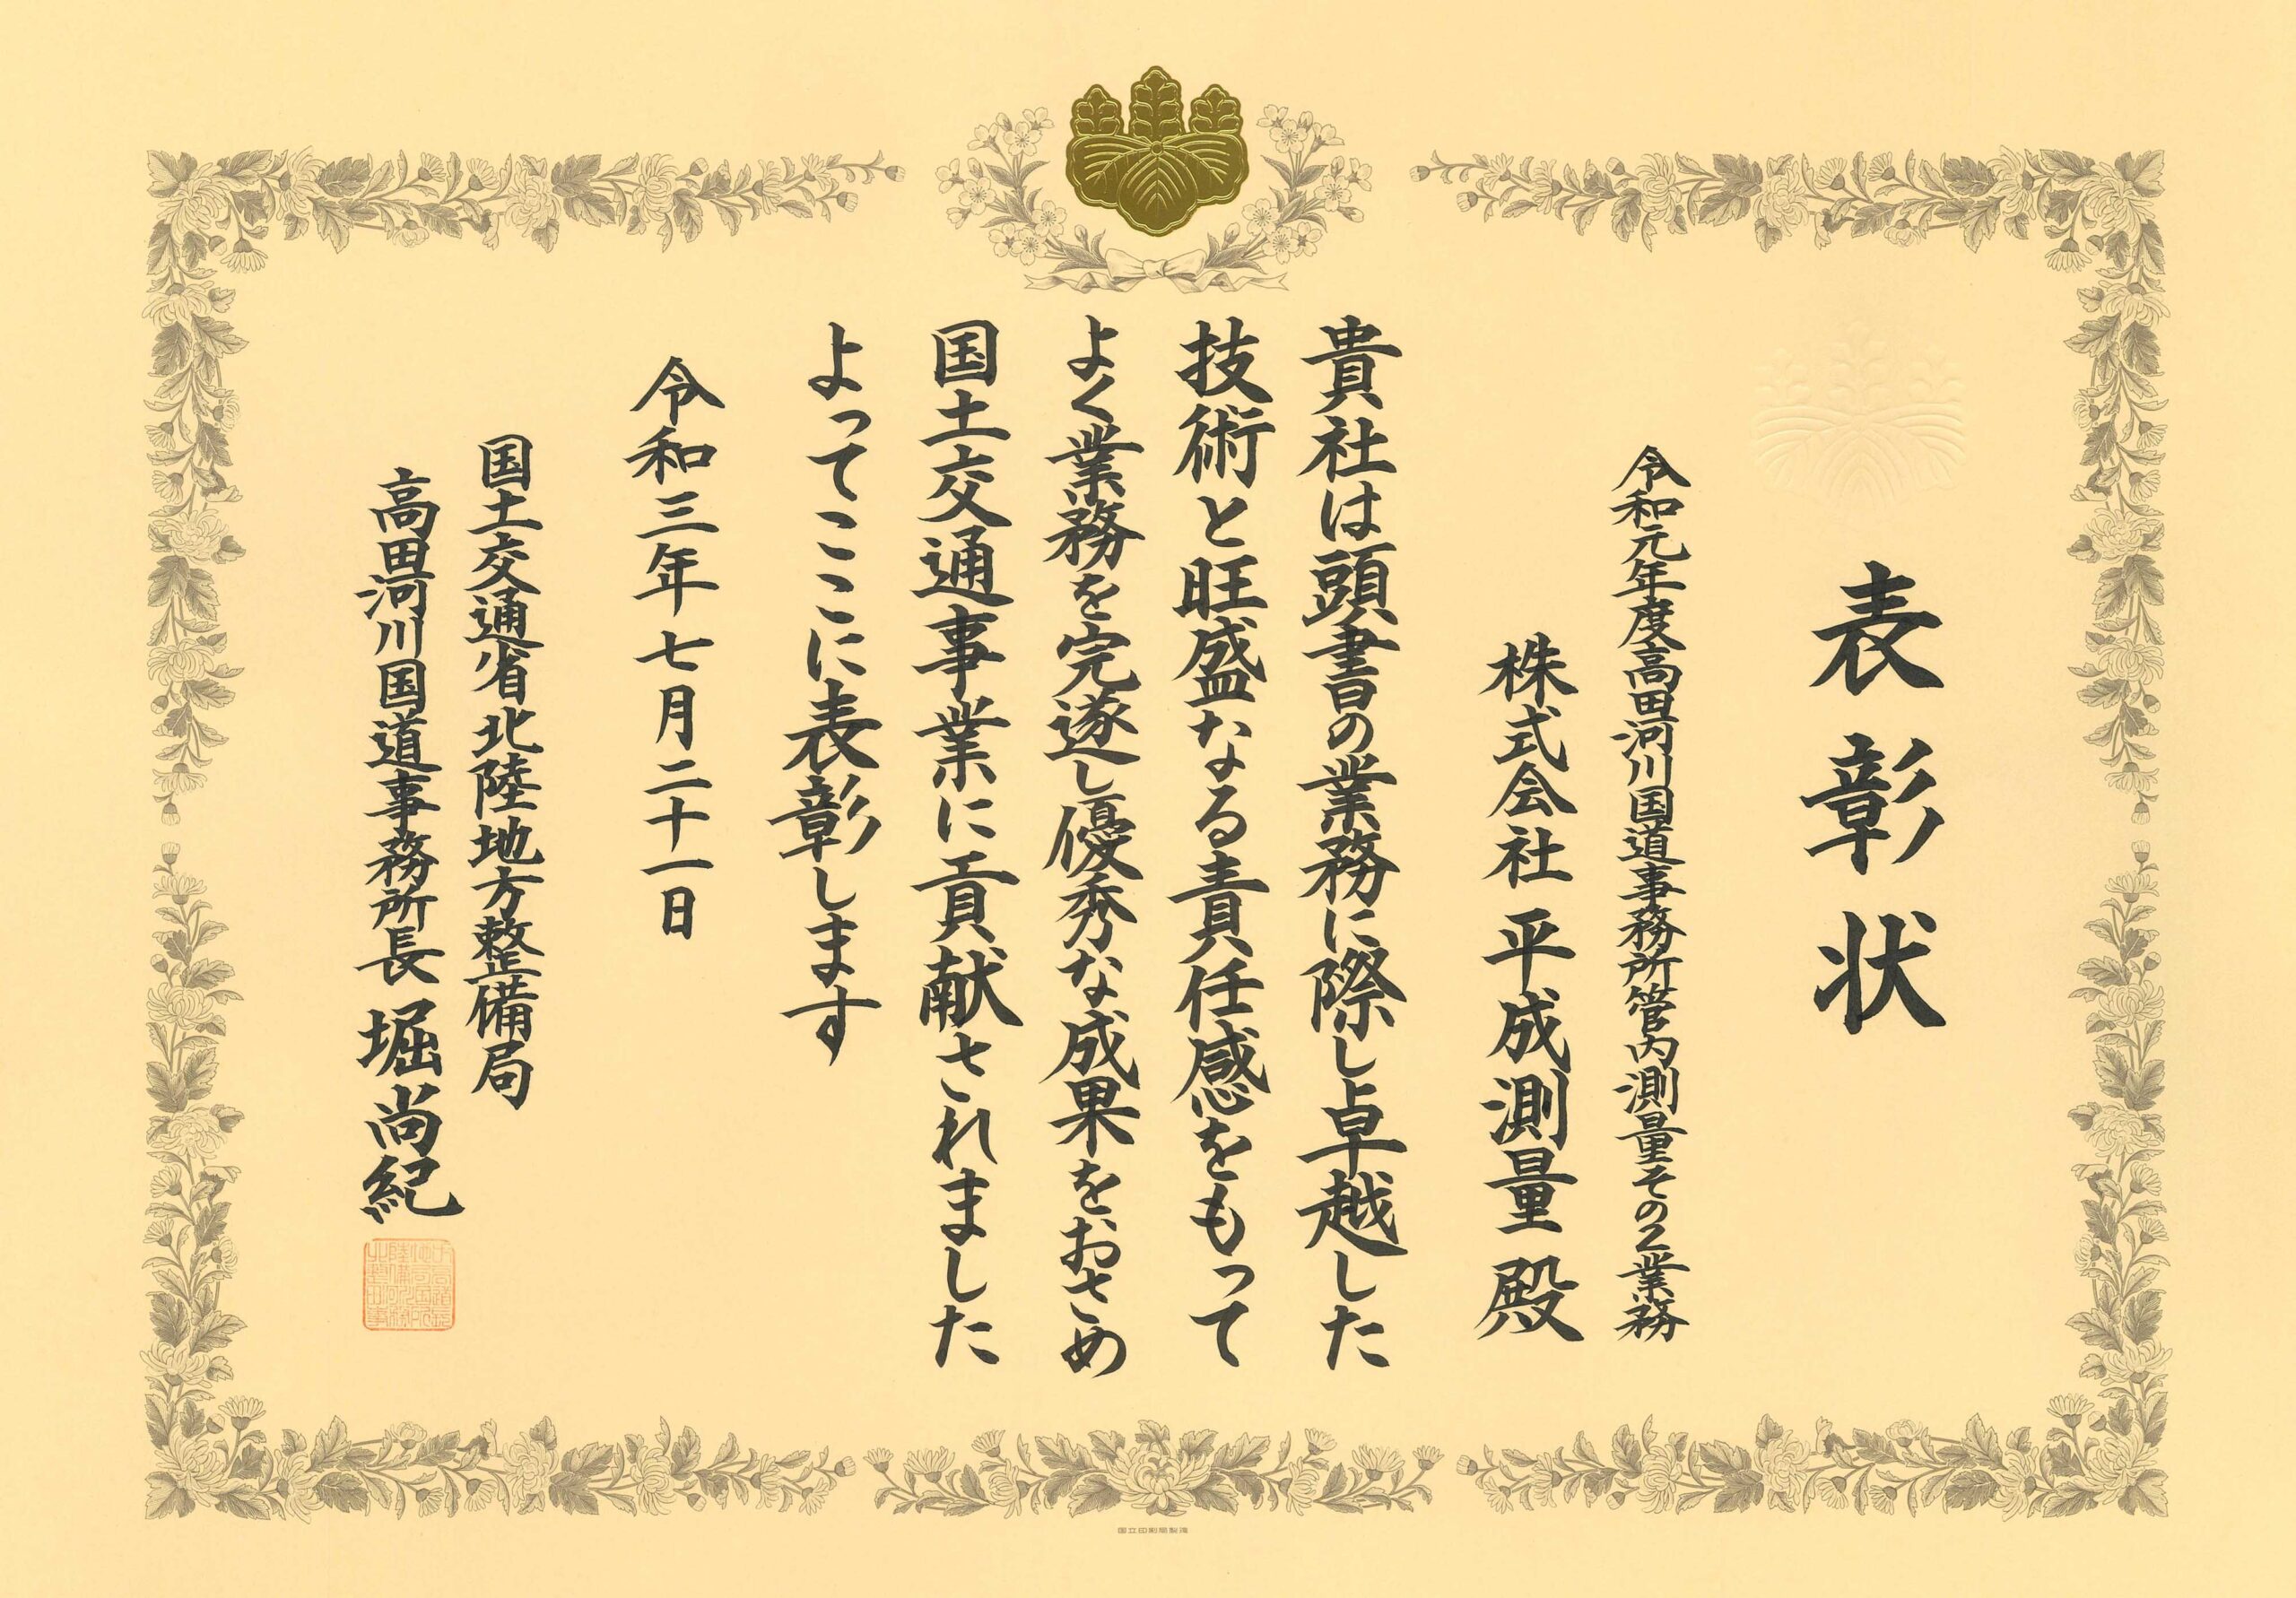 表彰状
令和元年度高田河川国道事務所管内測量その2業務
株式会社 平成測量 殿
貴社は頭書の業務に際し卓越した
技術と旺盛なる責任感をもって
よく業務を完遂し優秀な成果をおさめ
国土交通事業に貢献されました
よってここに表彰します
令和三年七月二十一日
国土交通省北陸地方整備局
高田河川国道事務所長 堀尚紀
国立印刷局製造